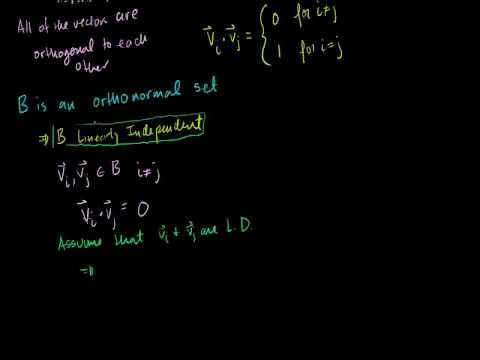 All of the vectors are
orthogonal to each
other
v⃗ᵢ · v⃗ⱼ = { 0 for i≠j
1 for i=j
B is an orthonormal set
⇒ B Linearly Independent
v⃗ᵢ, v⃗ⱼ ∈ B i≠j
v⃗ᵢ · v⃗ⱼ = 0
Assume that v⃗ᵢ + v⃗ⱼ are L.D.
⇒